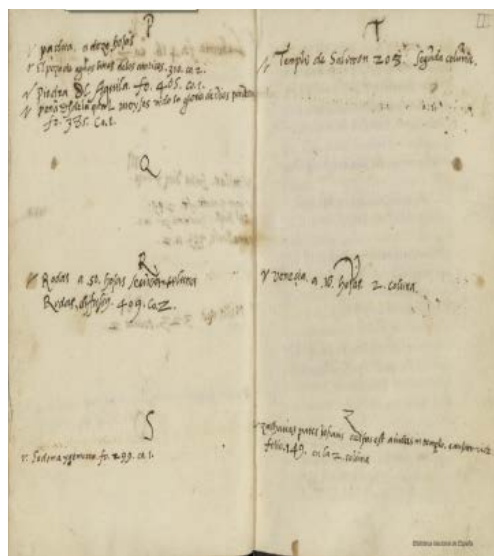 P
pascua. a doze. hojas
El pozo de aguas bivas delos canticos. 310. co. 2.
Piedra del Aguila fo. 405. co. 1.
peña desde la qual moyses vido la gloria de dios
fo. 335. co. 1.
Q
R
Rodas a 50. hojas columna
Rodas. 409. co 2.
S
Sodoma y gomorra. fo. 299. co. 1.
T
Templo de Salomon 203. segunda columna.
V
venecia. a 16. hojas 2. coluna.
Z
zacharias pater iohanis est in templo.
folio. 149. en la 2. coluna
Biblioteca Nacional de España